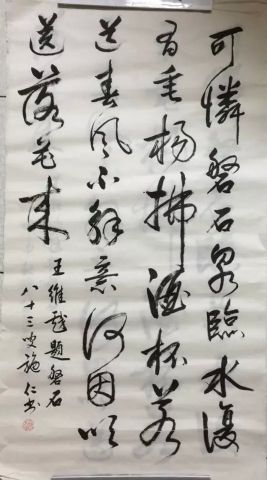 可憐磐石泉臨水復
有垂楊拂酒杯若
道春風不解意何因吹
送落花來
王維戲題磐石
八十三叟施仁書